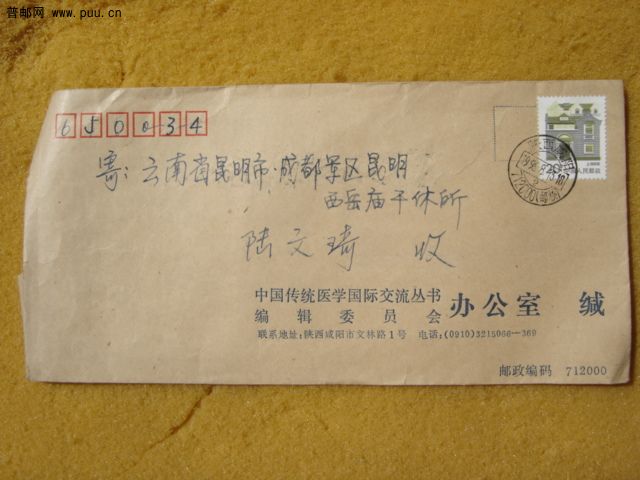 普邮网 www.puu.cn
650034
寄：云南省昆明市·成都军区昆明
西岳庙干休所
陆文琦 收
中国传统医学国际交流丛书
编辑委员会
办公室 缄
联系地址：陕西咸阳市文林路1号 电话：(0910)3215066—369
邮政编码 712000
20
中国人民邮政